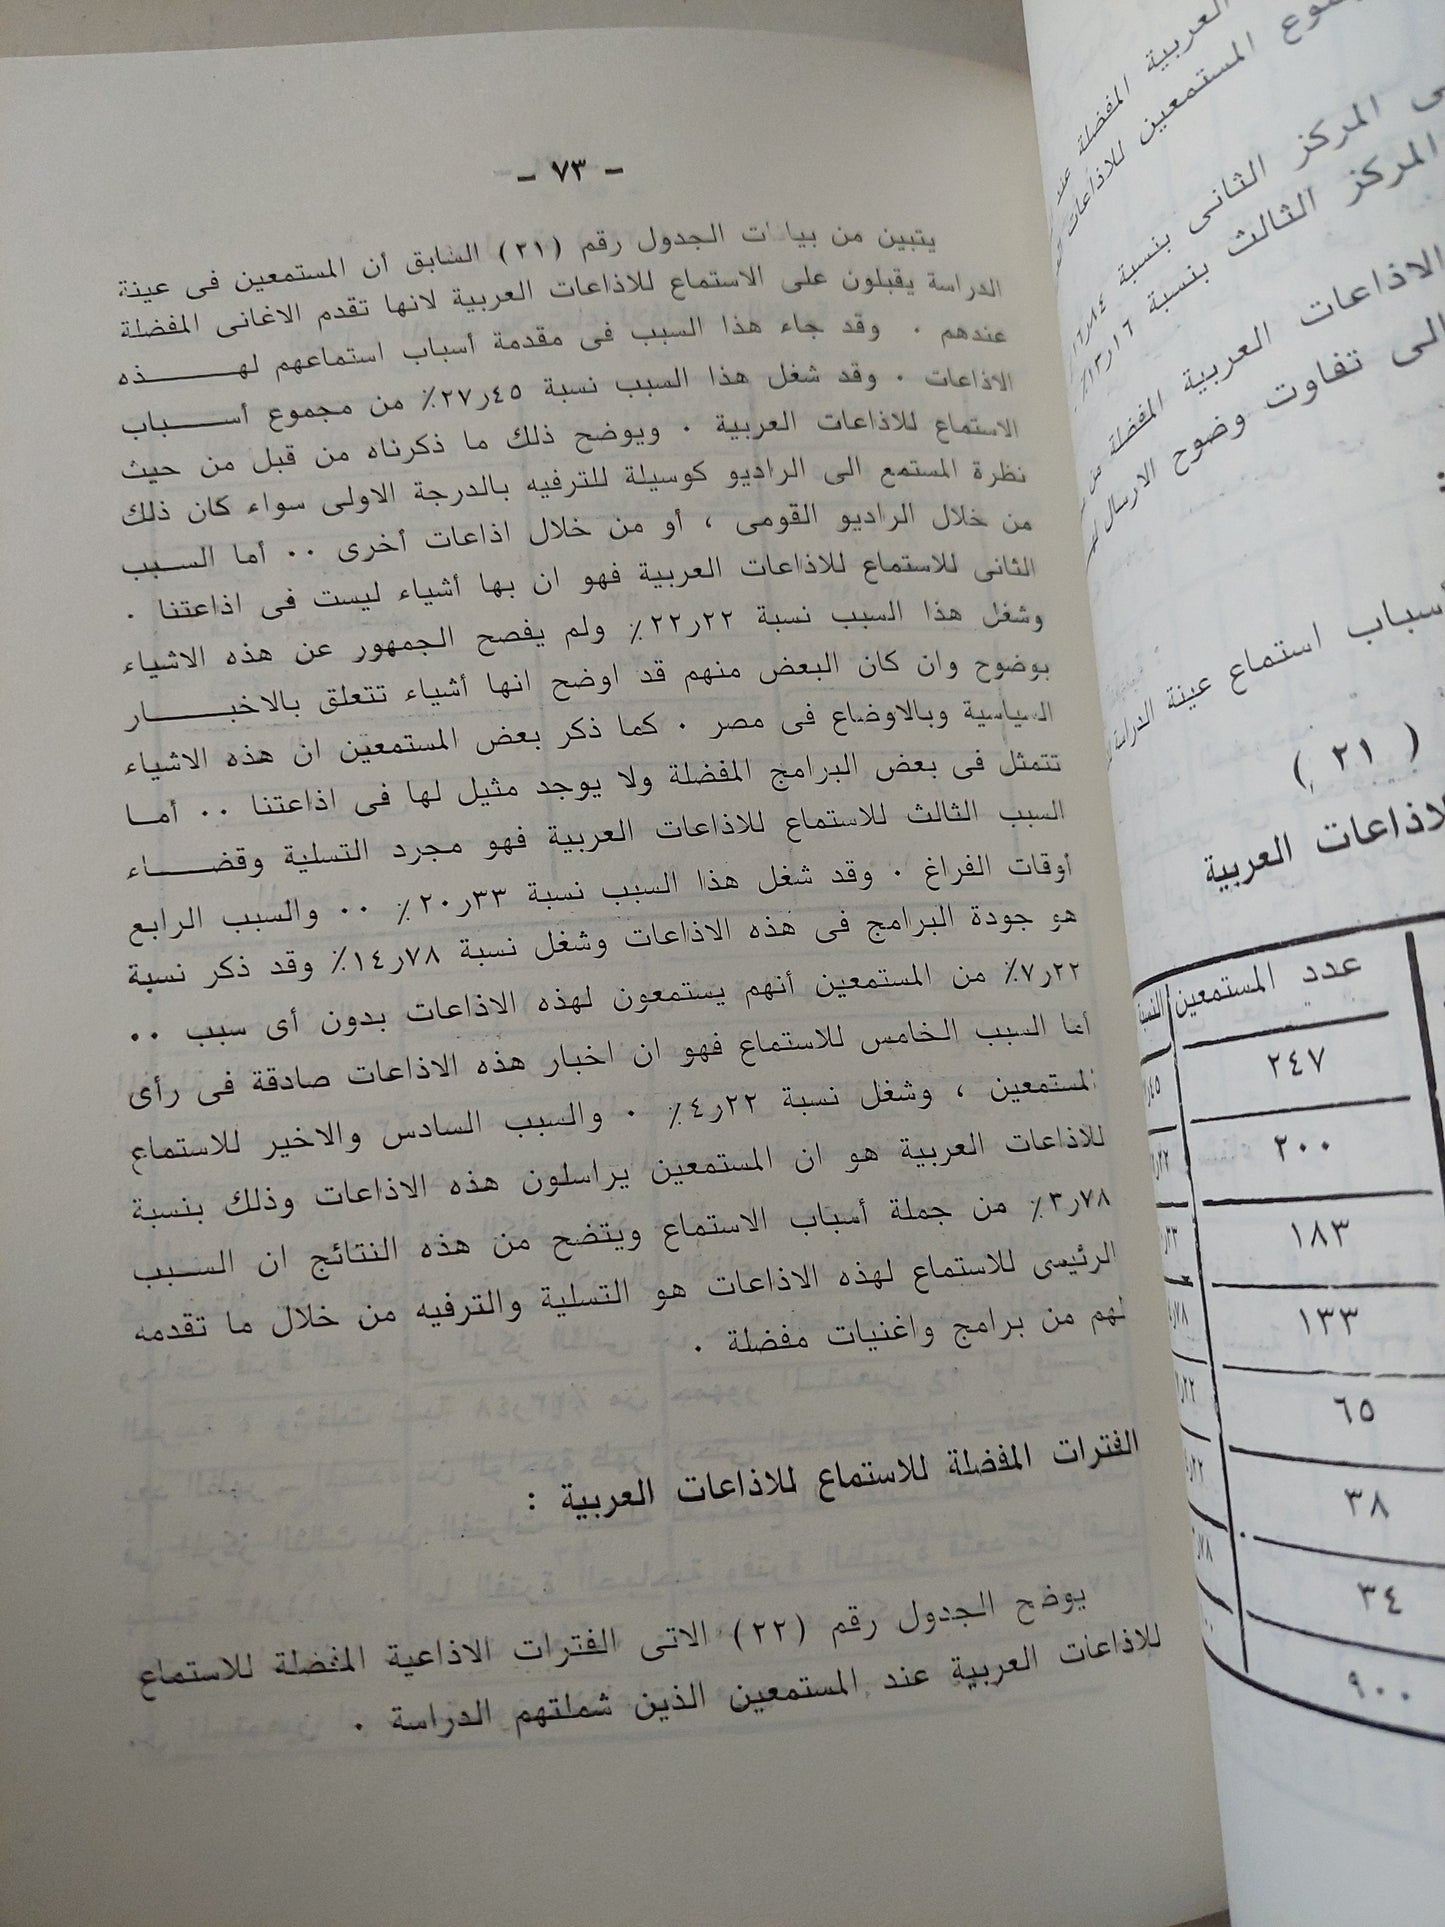 - ٧٣ -
يتبين من بيانات الجدول رقم (٢١) السابق أن المستمعين فى عينة
الدراسة يقبلون على الاستماع للاذاعات العربية لانها تقدم الاغانى المفضلة
عندهم . وقد جاء هذا السبب فى مقدمة أسباب استماعهم لهـــــذه
الاذاعات . وقد شغل هذا السبب نسبة ٢٧٫٤٥٪ من مجموع أســـباب
الاستماع للاذاعات العربية . ويوضح ذلك ما ذكرناه من قبل من حيث
نظرة المستمع الى الراديو كوسيلة للترفيه بالدرجة الاولى سواء كان ذلك
من خلال الراديو القومى ، أو من خلال اذاعات أخرى .. أما الســبب
الثانى للاستماع للاذاعات العربية فهو ان بها أشياء ليست فى اذاعتنا .
وشغل هذا السبب نسبة ٢٢٫٢٢٪ ولم يفصح الجمهور عن هذه الاشياء
بوضوح وان كان البعض منهم قد اوضح انها أشياء تتعلق بالاخبـــــار
السياسية وبالاوضاع فى مصر . كما ذكر بعض المستمعين ان هذه الاشياء
تتمثل فى بعض البرامج المفضلة ولا يوجد مثيل لها فى اذاعتنا .. أمــا
السبب الثالث للاستماع للاذاعات العربية فهو مجرد التسلية وقضـــــاء
أوقات الفراغ . وقد شغل هذا السبب نسبة ٢٠٫٣٣٪ .. والسبب الرابع
هو جودة البرامج فى هذه الاذاعات وشغل نسبة ١٤٫٧٨٪ وقد ذكر نسبة
٧٫٢٢٪ من المستمعين أنهم يستمعون لهذه الاذاعات بدون أى سبب ..
أما السبب الخامس للاستماع فهو ان اخبار هذه الاذاعات صادقة فى رأى
المستمعين ، وشغل نسبة ٤٫٢٢٪ . والسبب السادس والاخير للاستماع
للاذاعات العربية هو ان المستمعين يراسلون هذه الاذاعات وذلك بنسبة
٣٫٧٨٪ من جملة أسباب الاستماع ويتضح من هذه النتائج ان الســبب
الرئيسى للاستماع لهذه الاذاعات هو التسلية والترفيه من خلال ما تقدمه
لهم من برامج واغنيات مفضلة .
الفترات المفضلة للاستماع للاذاعات العربية :
يوضح الجدول رقم (٢٢) الاتى الفترات الاذاعية المفضلة للاستماع
للاذاعات العربية عند المستمعين الذين شملتهم الدراسة .
العربية المفضلة عند
المستمعين للاذاعات
المركز الثانى بنسبة
المركز الثالث بنسبة ١٣٫١٦٪
الاذاعات العربية المفضلة من
تفاوت وضوح الارسال
أسباب استماع عينة الدراسة
( ٢١ )
العربية
عدد المستمعين
٢٤٧
٢٠٠
١٨٣
١٣٣
٦٥
٣٨
٣٤
٩٠٠